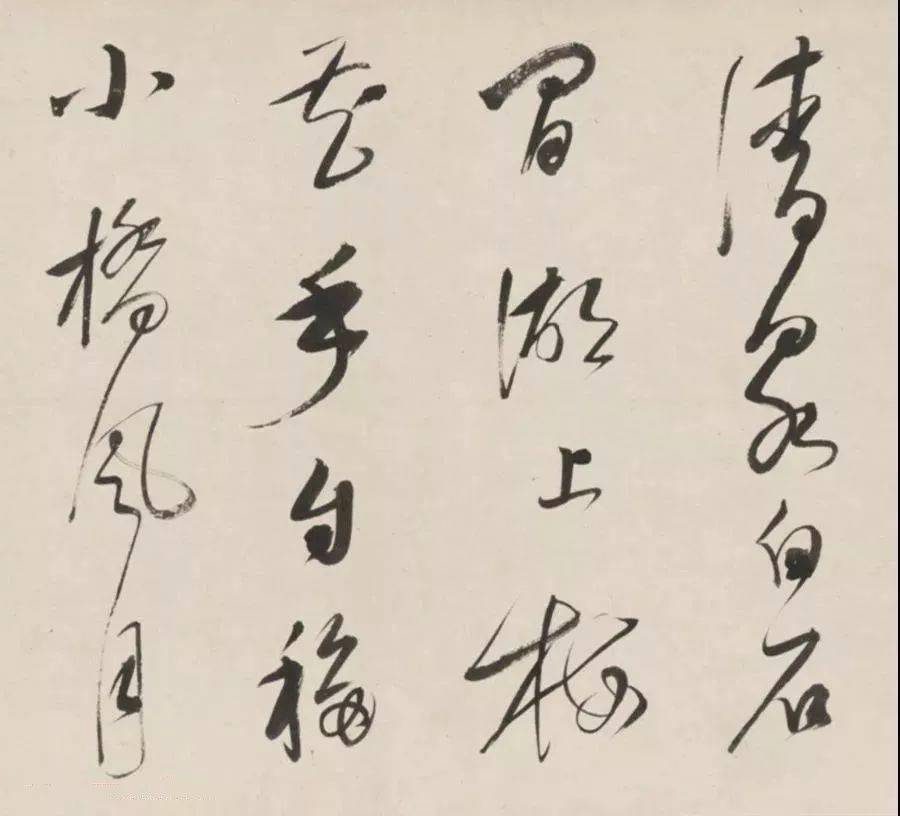 清泉白石
間湖上梅
花手自移
小橋風月